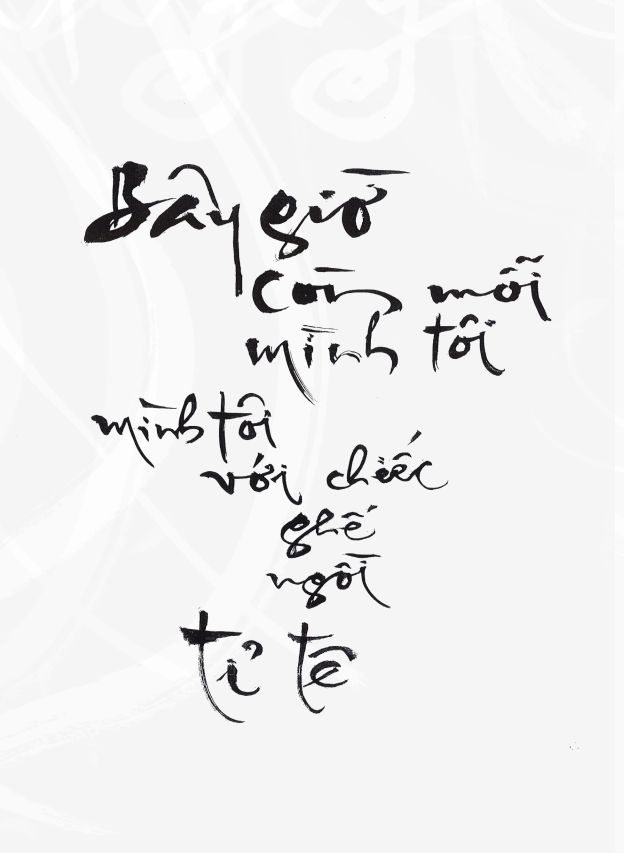 Bây giờ
còn mỗi
mình tôi
mình tôi
với chiếc
ghế
ngồi
tỉ tê